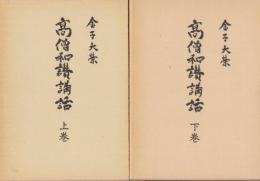 金子大榮
高僧和讃講話
上巻
金子大榮
高僧和讃講話
下巻